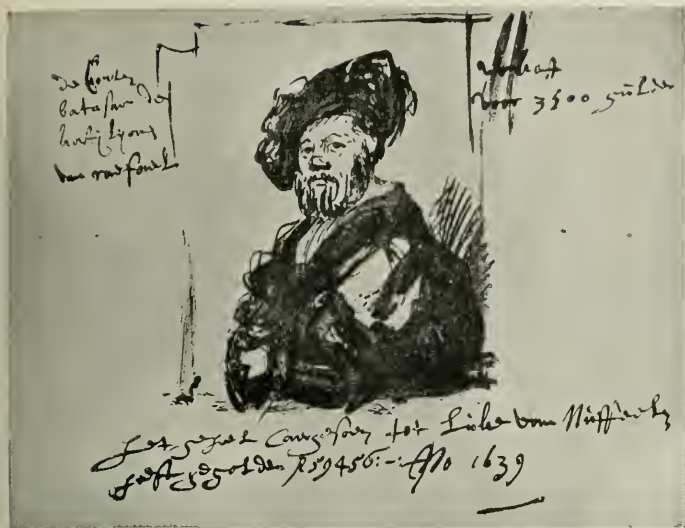 de Conte
batasar de
kastijlyone
van raefael
verkoft
voor 3500 gulden
het geheel Caergesoen tot Luke van Nuffeelen
heeft gegolden f 59456:-: Ao 1639